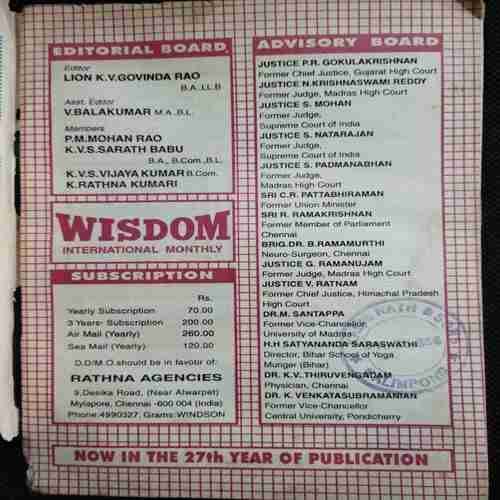 EDITORIAL BOARD
Editor
LION K.V.GOVINDA RAO
B.A.,LL.B
Asst. Editor
V.BALAKUMAR M.A.,B.L.
Members
P.M.MOHAN RAO
K.V.S.SARATH BABU
B.A., B.Com.,B.L.
K.V.S.VIJAYA KUMAR B.Com.
K.RATHNA KUMARI
WISDOM
INTERNATIONAL MONTHLY
SUBSCRIPTION
Rs.
Yearly Subscription 70.00
3 Years- Subscription 200.00
Air Mail (Yearly) 260.00
Sea Mail (Yearly) 120.00
D.D/M.O.should be in favour of:
RATHNA AGENCIES
9,Desika Road, (Near Alwarpet)
Mylapore, Chennai -600 004 (India)
Phone:4990327, Grams:WINDSON
ADVISORY BOARD
JUSTICE P.R. GOKULAKRISHNAN
Former Chief Justice, Gujarat High Court
JUSTICE N.KRISHNASWAMI REDDY
Former Judge, Madras High Court
JUSTICE S. MOHAN
Former Judge,
Supreme Court of India
JUSTICE S. NATARAJAN
Former Judge,
Supreme Court of India
JUSTICE S. PADMANABHAN
Former Judge,
Madras High Court
SRI C.R. PATTABHIRAMAN
Former Union Minister
SRI R. RAMAKRISHNAN
Former Member of Parliament
Chennai
BRIG.DR. B.RAMAMURTHI
Neuro-Surgeon, Chennai
JUSTICE G. RAMANUJAM
Former Judge, Madras High Court
JUSTICE V. RATNAM
Former Chief Justice, Himachal Pradesh
High Court
DR.M. SANTAPPA
Former Vice-Chancellor
University of Madras
H.H SATYANANDA SARASWATHI
Director, Bihar School of Yoga
Munger (Bihar)
DR. K.V.THIRUVENGADAM
Physician, Chennai
DR. K. VENKATASUBRAMANIAN
Former Vice-Chancellor
Central University, Pondicherry
NOW IN THE 27th YEAR OF PUBLICATION